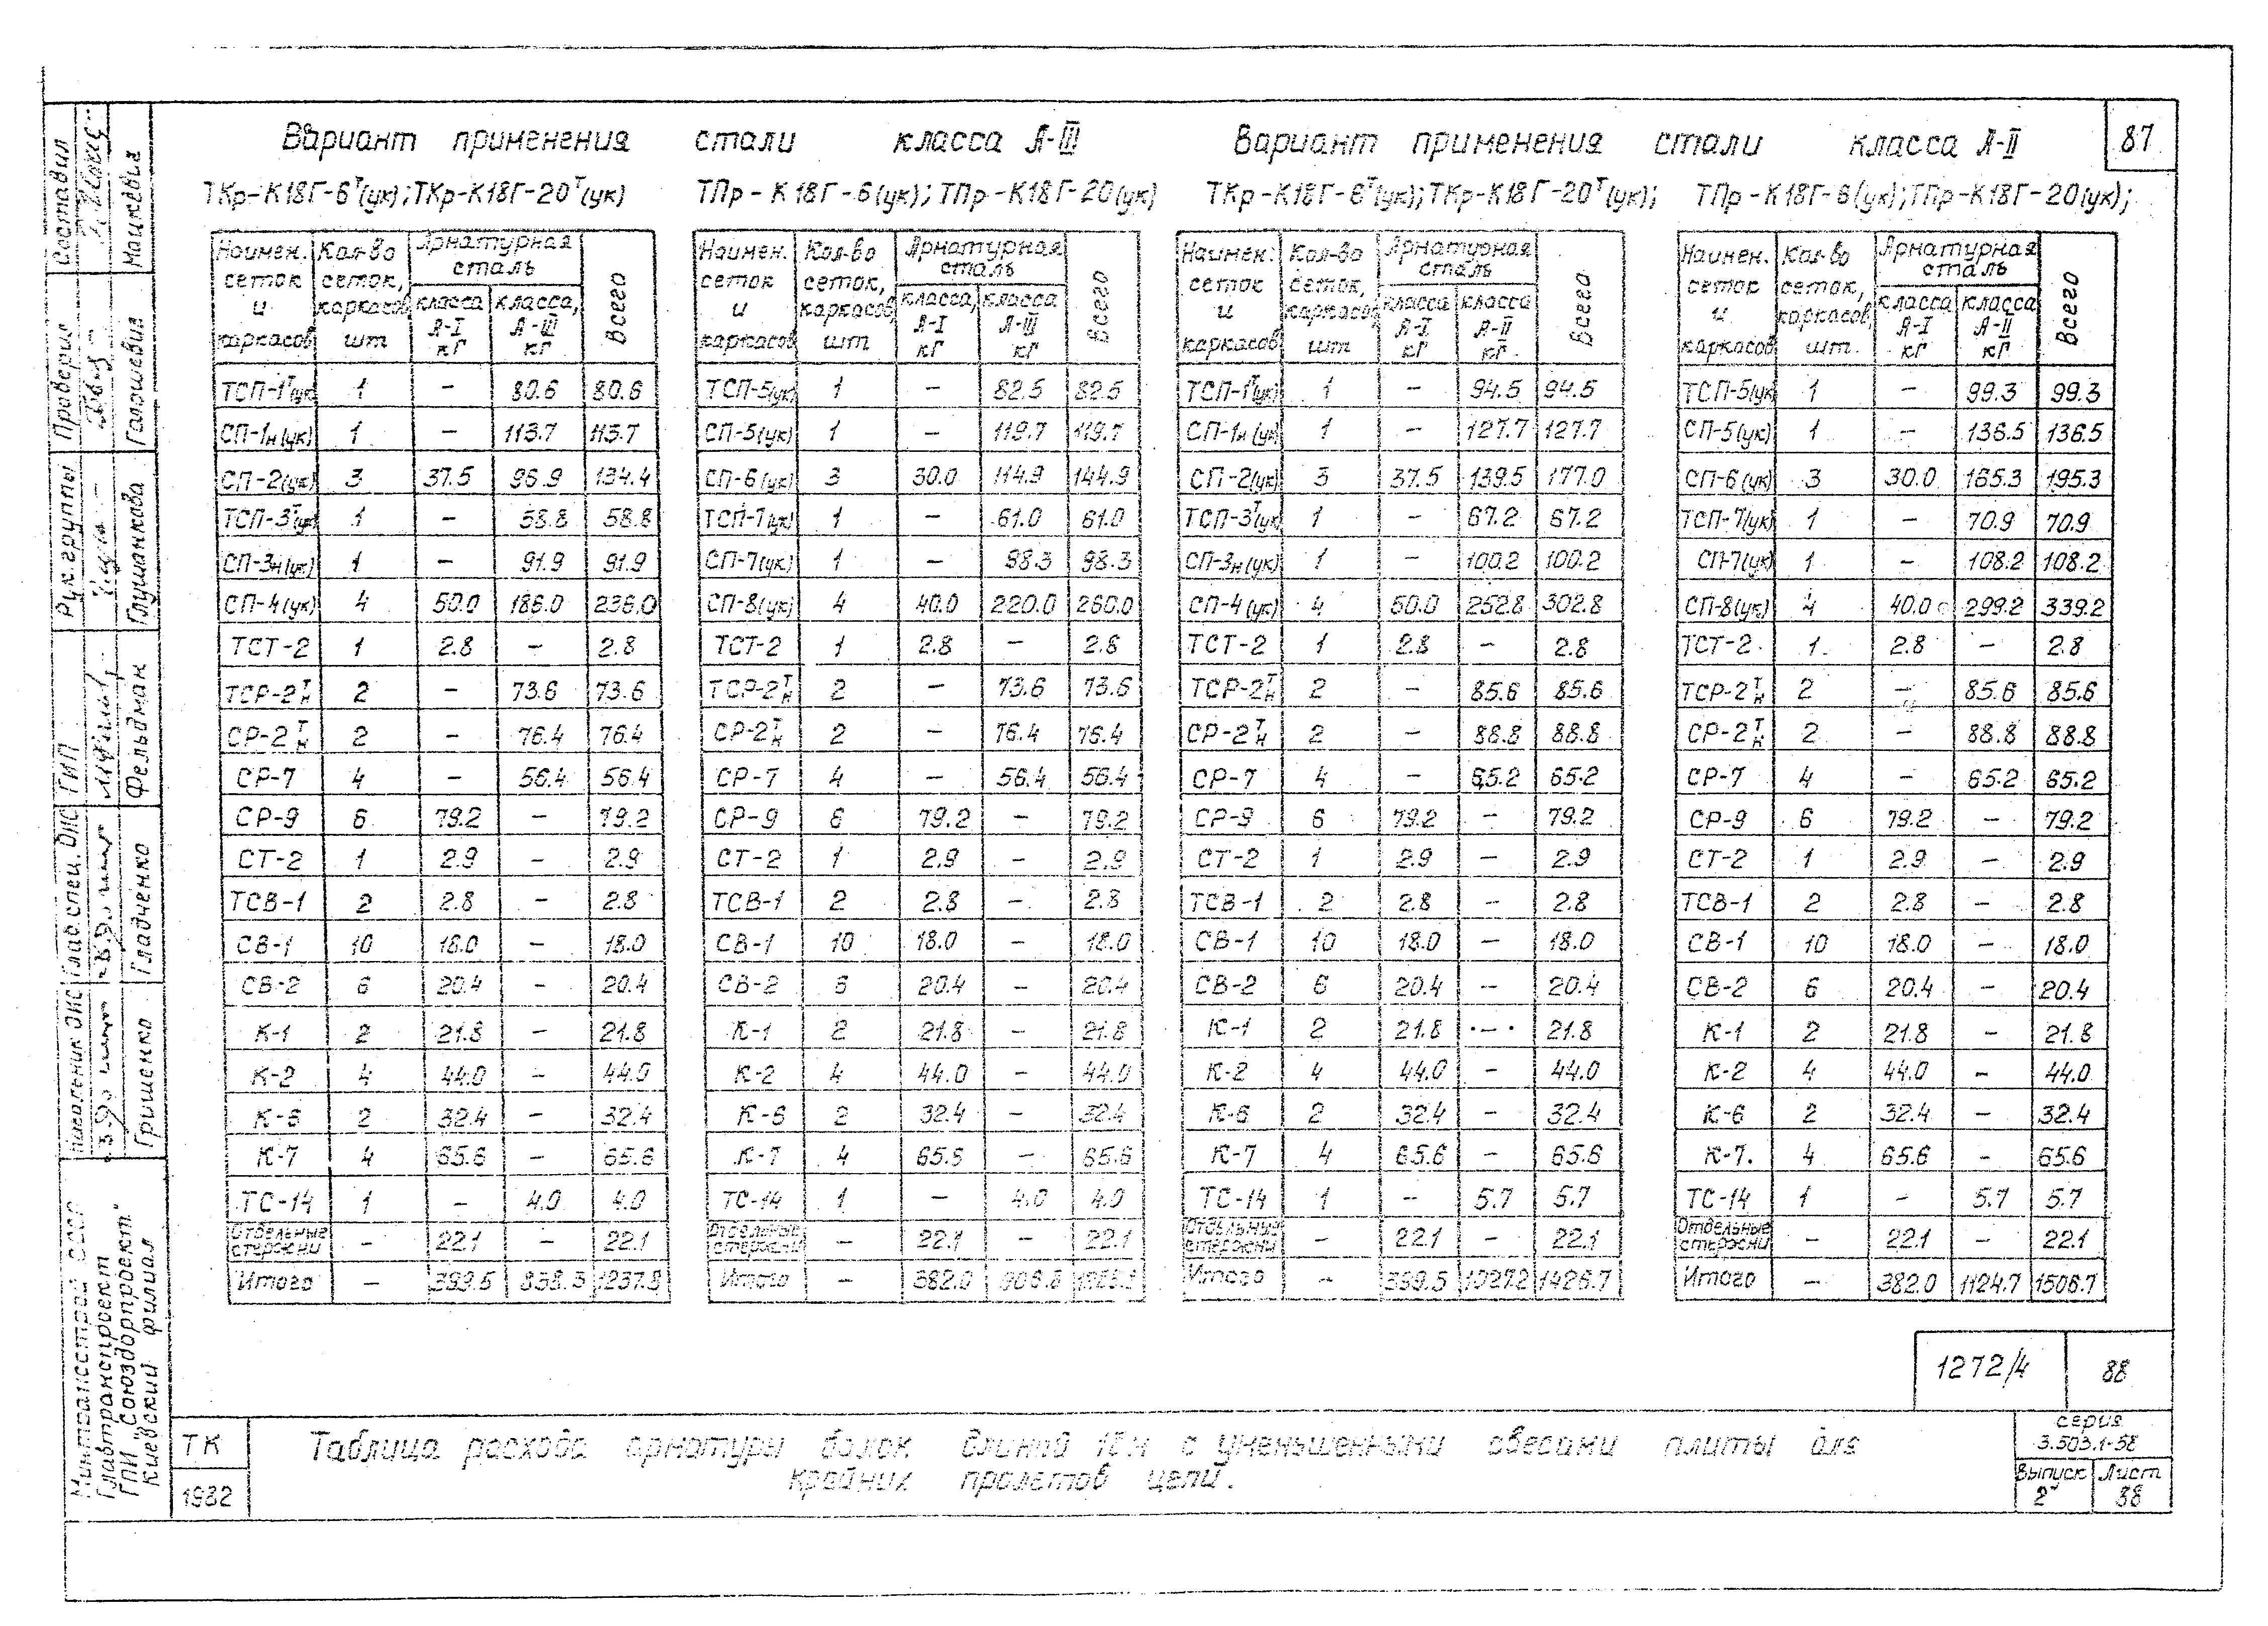 87
Вариант применения стали класса А-III
Вариант применения стали класса А-II
ТКр-К18Г-6ᵀ(ук); ТКр-К18Г-20ᵀ(ук)
Наимен. сеток и каркасов | Кол-во сеток, каркасов, шт | Арматурная сталь класса А-I кг | класса, А-III кг | Всего
ТСП-1ᵀ(ук) 1 – 80.6 80.6
СП-1н(ук) 1 – 113.7 113.7
СП-2(ук) 3 37.5 96.9 134.4
ТСП-3ᵀ(ук) 1 – 58.8 58.8
СП-3н(ук) 1 – 91.9 91.9
СП-4(ук) 4 50.0 186.0 236.0
ТСТ-2 1 2.8 – 2.8
ТСР-2ᵀн 2 – 73.6 73.6
СР-2ᵀн 2 – 76.4 76.4
СР-7 4 – 56.4 56.4
СР-9 6 79.2 – 79.2
СТ-2 1 2.9 – 2.9
ТСВ-1 2 2.8 – 2.8
СВ-1 10 18.0 – 18.0
СВ-2 6 20.4 – 20.4
К-1 2 21.8 – 21.8
К-2 4 44.0 – 44.0
К-6 2 32.4 – 32.4
К-7 4 65.6 – 65.6
ТС-14 1 – 4.0 4.0
Отдельные стержни – 22.1 – 22.1
Итого – 399.5 838.3 1237.8
ТПр-К18Г-6(ук); ТПр-К18Г-20(ук)
Наимен. сеток и каркасов | Кол-во сеток, каркасов, шт | Арматурная сталь класса, А-I кг | класса А-III кг | Всего
ТСП-5(ук) 1 – 82.5 82.5
СП-5(ук) 1 – 119.7 119.7
СП-6(ук) 3 30.0 114.9 144.9
ТСП-7(ук) 1 – 61.0 61.0
СП-7(ук) 1 – 98.3 98.3
СП-8(ук) 4 40.0 220.0 260.0
ТСТ-2 1 2.8 – 2.8
ТСР-2ᵀн 2 – 73.6 73.6
СР-2ᵀн 2 – 76.4 76.4
СР-7 4 – 56.4 56.4
СР-9 6 79.2 – 79.2
СТ-2 1 2.9 – 2.9
ТСВ-1 2 2.8 – 2.8
СВ-1 10 18.0 – 18.0
СВ-2 6 20.4 – 20.4
К-1 2 21.8 – 21.8
К-2 4 44.0 – 44.0
К-6 2 32.4 – 32.4
К-7 4 65.6 – 65.6
ТС-14 1 – 4.0 4.0
Отдельные стержни – 22.1 – 22.1
Итого – 382.0
ТКр-К18Г-6ᵀ(ук); ТКр-К18Г-20ᵀ(ук);
Наимен. сеток и каркасов | Кол-во сеток, каркасов, шт | Арматурная сталь класса А-I кг | класса А-II кг. | Всего
ТСП-1ᵀ(ук) 1 – 94.5 94.5
СП-1н(ук) 1 – 127.7 127.7
СП-2(ук) 3 37.5 139.5 177.0
ТСП-3ᵀ(ук) 1 – 67.2 67.2
СП-3н(ук) 1 – 100.2 100.2
СП-4(ук) 4 50.0 252.8 302.8
ТСТ-2 1 2.8 – 2.8
ТСР-2ᵀн 2 – 85.6 85.6
СР-2ᵀн 2 – 88.8 88.8
СР-7 4 – 65.2 65.2
СР-9 6 79.2 – 79.2
СТ-2 1 2.9 – 2.9
ТСВ-1 2 2.8 – 2.8
СВ-1 10 18.0 – 18.0
СВ-2 6 20.4 – 20.4
К-1 2 21.8 – 21.8
К-2 4 44.0 – 44.0
К-6 2 32.4 – 32.4
К-7 4 65.6 – 65.6
ТС-14 1 – 5.7 5.7
Отдельные стержни – 22.1 – 22.1
Итого – 399.5 1027.2 1426.7
ТПр-К18Г-6(ук); ТПр-К18Г-20(ук);
Наимен. сеток и каркасов | Кол-во сеток, каркасов, шт. | Арматурная сталь класса А-I кг | класса А-II кг | Всего
ТСП-5(ук) 1 – 99.3 99.3
СП-5(ук) 1 – 136.5 136.5
СП-6(ук) 3 30.0 165.3 195.3
ТСП-7(ук) 1 – 70.9 70.9
СП-7(ук) 1 – 108.2 108.2
СП-8(ук) 4 40.0 299.2 339.2
ТСТ-2 1 2.8 – 2.8
ТСР-2ᵀн 2 – 85.6 85.6
СР-2ᵀн 2 – 88.8 88.8
СР-7 4 – 65.2 65.2
СР-9 6 79.2 – 79.2
СТ-2 1 2.9 – 2.9
ТСВ-1 2 2.8 – 2.8
СВ-1 10 18.0 – 18.0
СВ-2 6 20.4 – 20.4
К-1 2 21.8 – 21.8
К-2 4 44.0 – 44.0
К-6 2 32.4 – 32.4
К-7. 4 65.6 – 65.6
ТС-14 1 – 5.7 5.7
Отдельные стержни – 22.1 – 22.1
Итого – 382.0 1124.7 1506.7
1272/4 88
ТК
1982
Таблица расхода арматуры балок длиной 18м с уменьшенными свесами плиты для
крайних пролетов цепи.
серия
3.503.1-58
Выпуск 2
Лист 38
Составил Мацкевич
Проверил Галошевич
Рук. группы Глушанкова
ГИП Фельдман
Глав. спец. ОИС Гладченко
Начальник ОИС Гришенко
Минтрансстрой СССР
Главтранспроект
ГПИ "Союздорпроект"
Киевский филиал